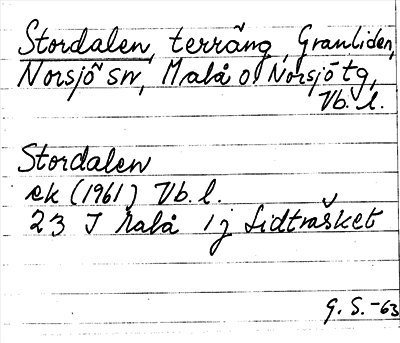 Stordalen, terräng, Granliden,
Norsjö sn, Malå o. Norsjö tg,
Vb. l.
Stordalen
ek (1961) Vb. l.
23 J Malå 1j Lidträsket
G. S. -63